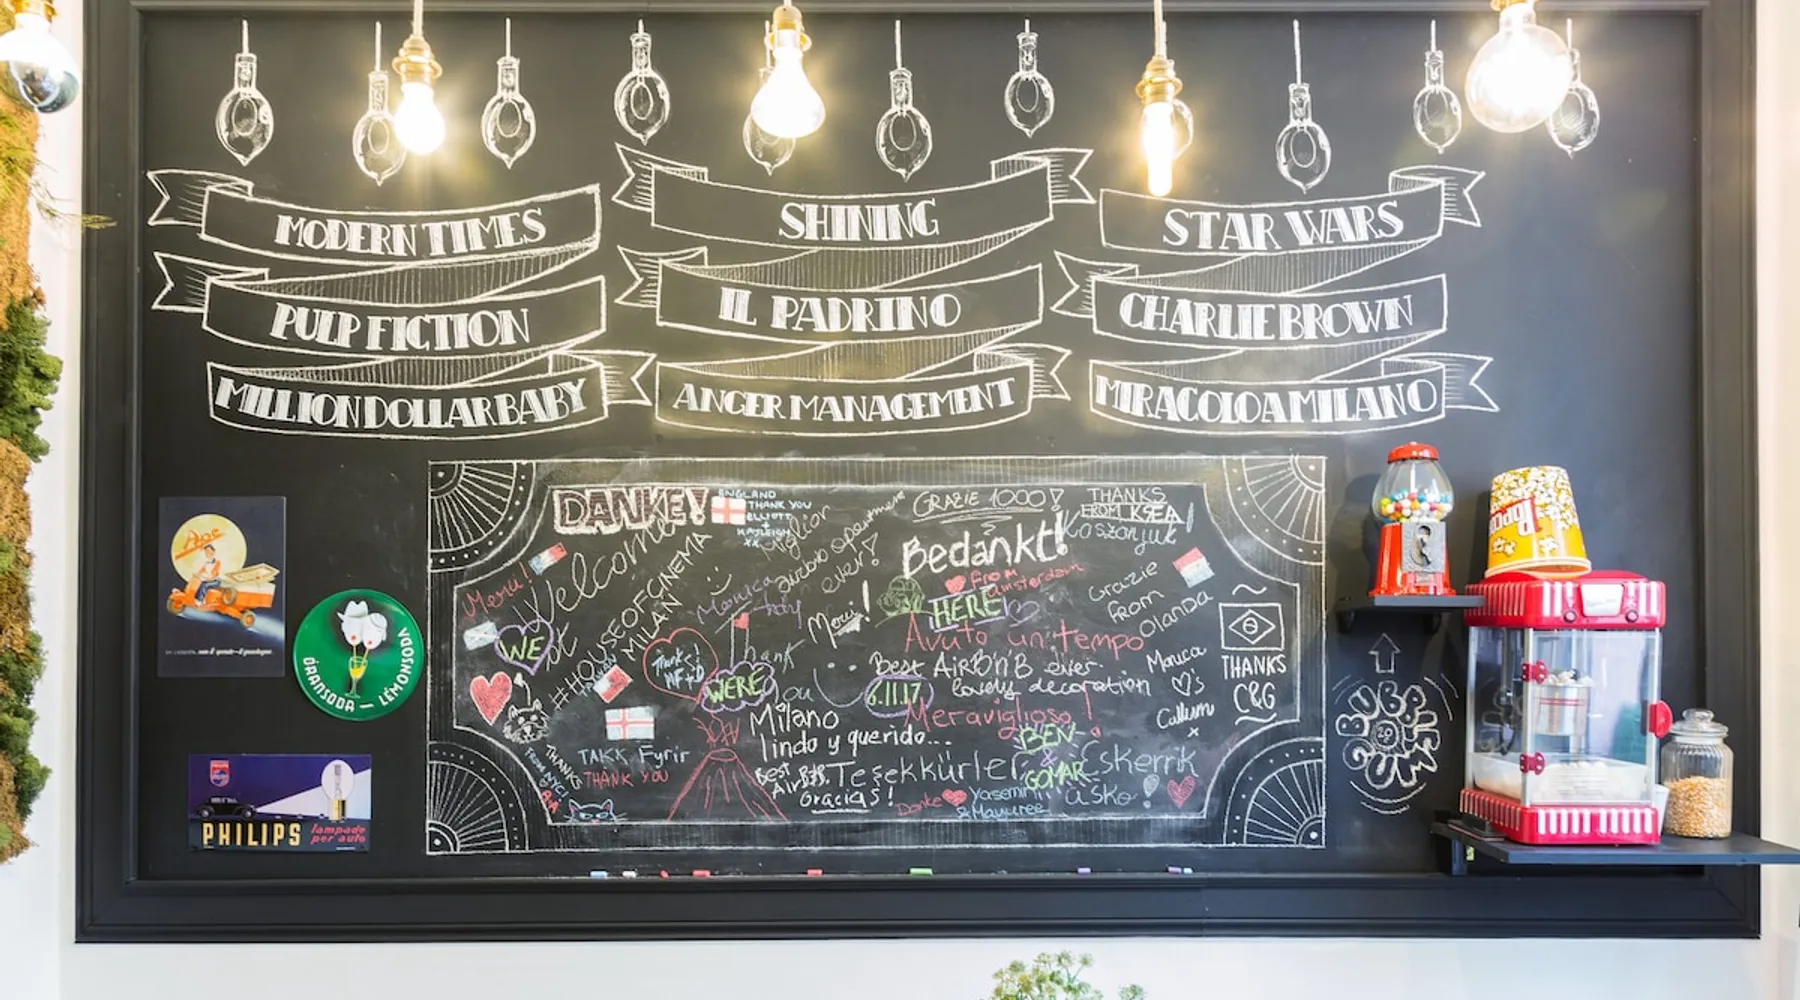 MODERN TIMES
PULP FICTION
MILLION DOLLAR BABY
SHINING
IL PADRINO
ANGER MANAGEMENT
STAR WARS
CHARLIE BROWN
MIRACOLO A MILANO
DANKE!
ENGLAND
THANK YOU
ELLIOTT
+
KAYLEIGH
XX
GRAZIE 1000!
THANKS
FROM KSEA!
Koszonjuk
Welcome
Miglior
airbnb
ever!
Bedankt!
from
Amsterdam
Grazie
from
Olanda
#HOUSEOFCINEMA
MILAN
Monica
Merci!
HERE
WE
WERE
6.11.17
Avuto un tempo
Meraviglioso!
Thank
you
Thanks!
Best AirBnB ever
lovely decoration
Monica
♡'s
Callum
x
THANKS
C&G
Milano
lindo y querido...
BEN
&
GOMAR
TAKK Fyrir
THANK YOU
THANKS
FROM NYC!
Best
Gracias!
Teşekkürler
Eskerrik
asko
Danke
Yasemin
BUBBLE
GUM
20
Ape
ORANSODA — LEMONSODA
PHILIPS
PHILIPS
lampade
per auto
POPCORN